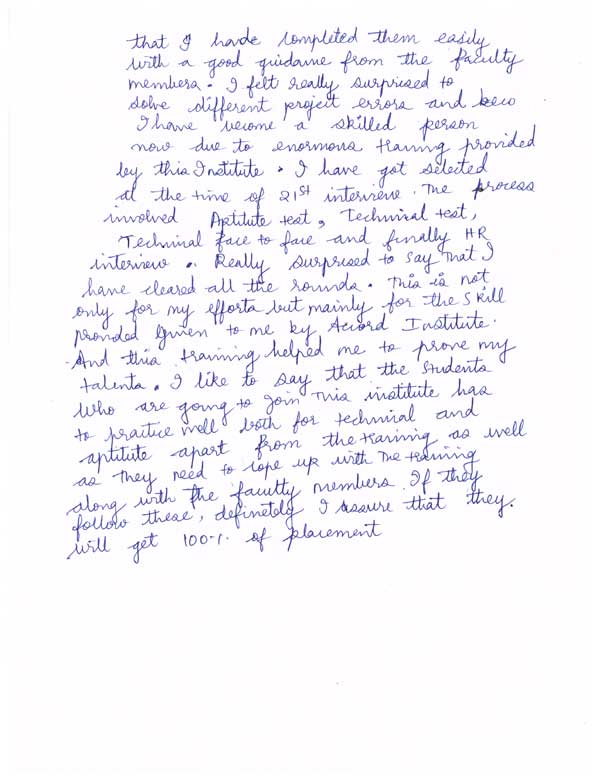 that I have completed them easily
with a good guidance from the faculty
members. I felt really surprised to
solve different project errors and beco
I have become a skilled person
now due to enormous traning provided
by this Institute. I have got selected
at the time of 21st interview. The process
involved Aptitute test, Technical test,
Technical face to face and finally HR
interview. Really surprised to say that I
have cleared all the rounds. This is not
only for my efforts but mainly for the skill
given to me by Accord Institute.
And this training helped me to prove my
talents. I like to say that the students
who are going to join this institute has
to practice well both for technical and
aptitute apart from the traning as well
as they need to cope up with the training
along with the faculty members. If they
follow these, definetely I assure that they.
will get 100% of placement